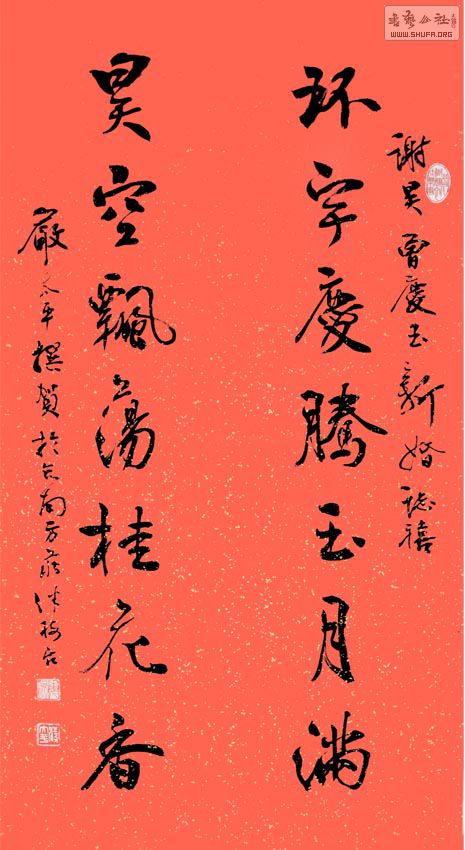 書藝公社
WWW.SHUFA.ORG
謝昊 曾慶玉新婚誌禧
环宇慶騰玉月滿
昊空飄蕩桂花香
嚴太平撰賀於